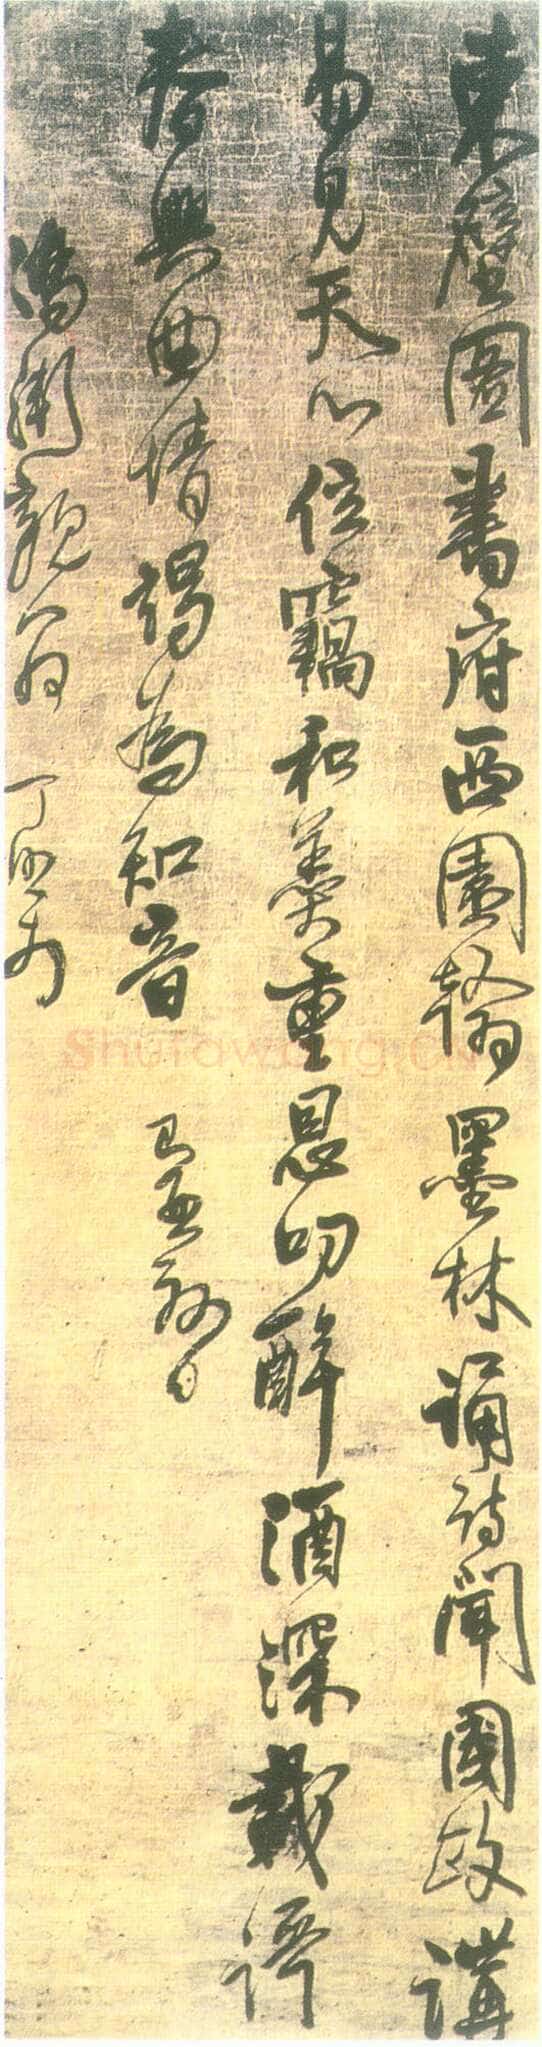 東壁圖書府西園翰墨林誦詩聞國政講
易見天心位竊和羹重恩叨醉酒深載謌
春興曲情竭為知音
親翁
Shufawang.CN